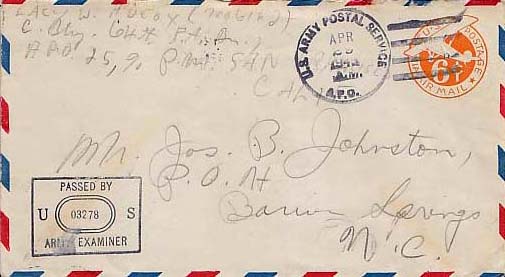 C. Btry 64th F.A. Bn.
APO 25, % P.M. SAN
CALIF
U.S. ARMY POSTAL SERVICE
APR
1943
A.M.
A.P.O.
U.S. POSTAGE
6¢
AIR MAIL
Mr. Jos. B. Johnston,
P.O.H
Barium Springs
N.C.
PASSED BY
U 03278 S
ARMY EXAMINER